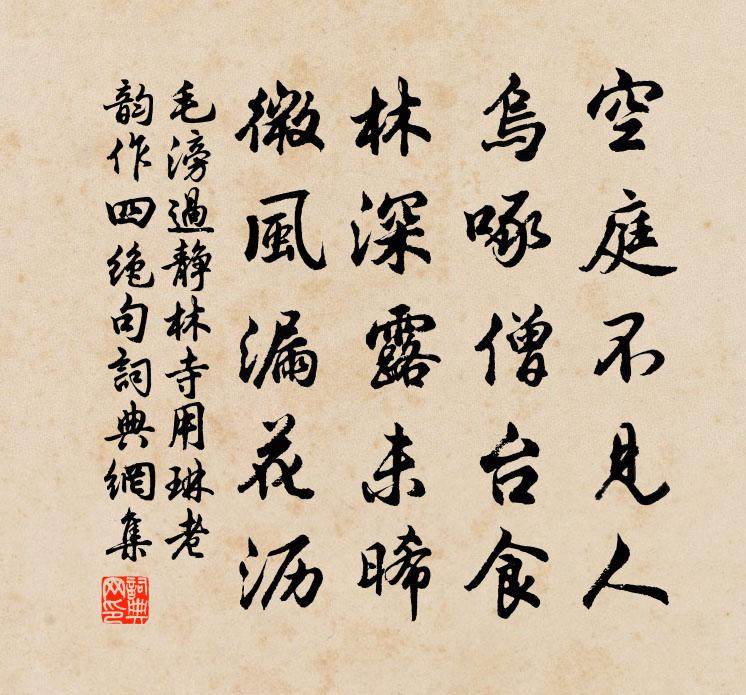 空庭不見人
烏啄僧台食
林深露未晞
微風漏花沥
毛滂過靜林寺用琳老
韵作四绝句詞典網集
詞典網印